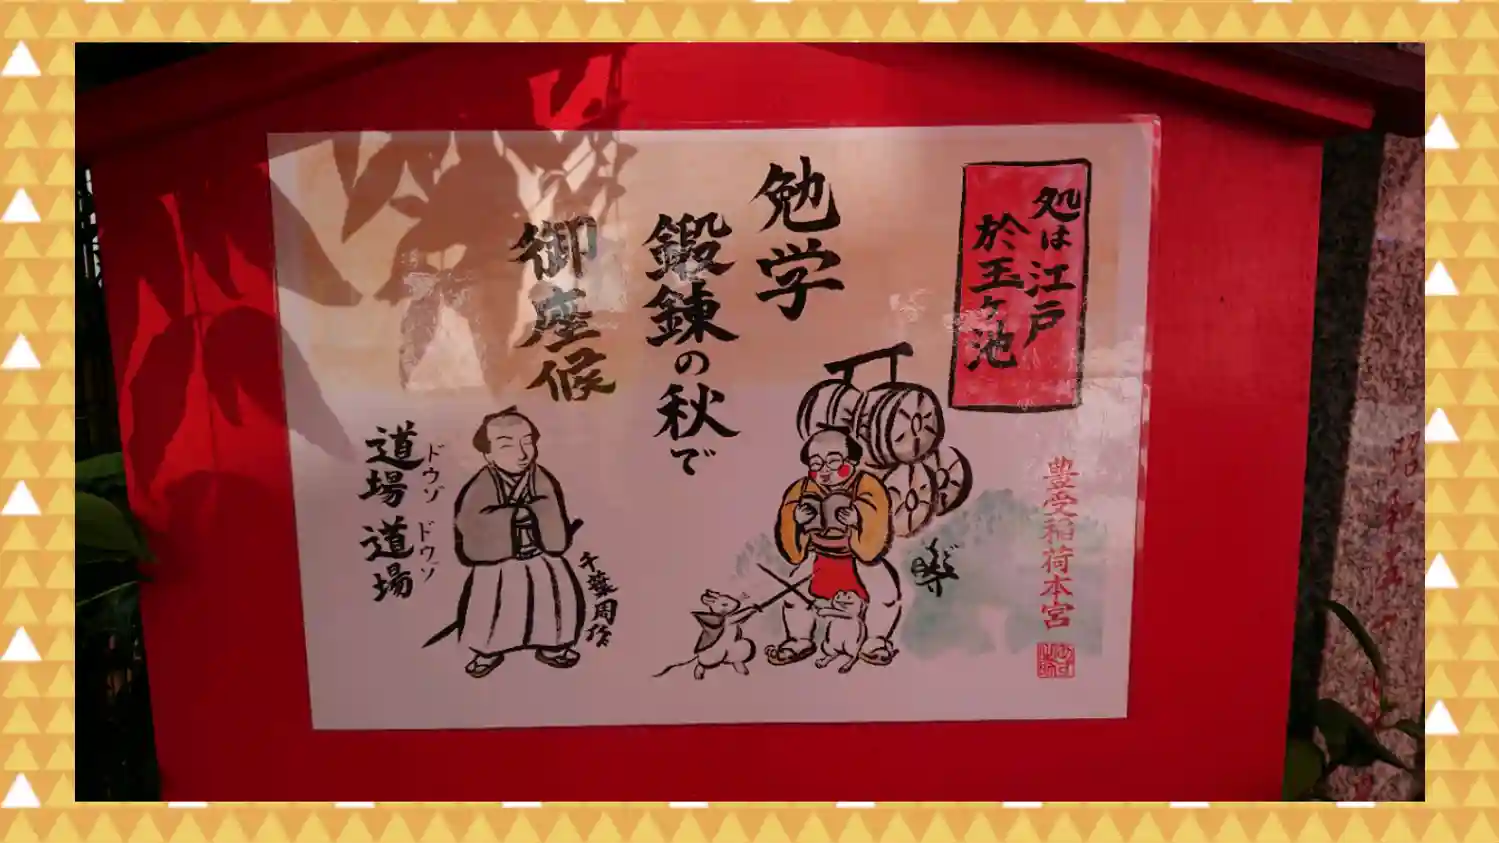 処は江戸
於玉ヶ池
豊受稲荷本宮
勉学
鍛錬の秋で
御座候
千葉周作
ドウゾ
ドウゾ
道場
道場
昭和五